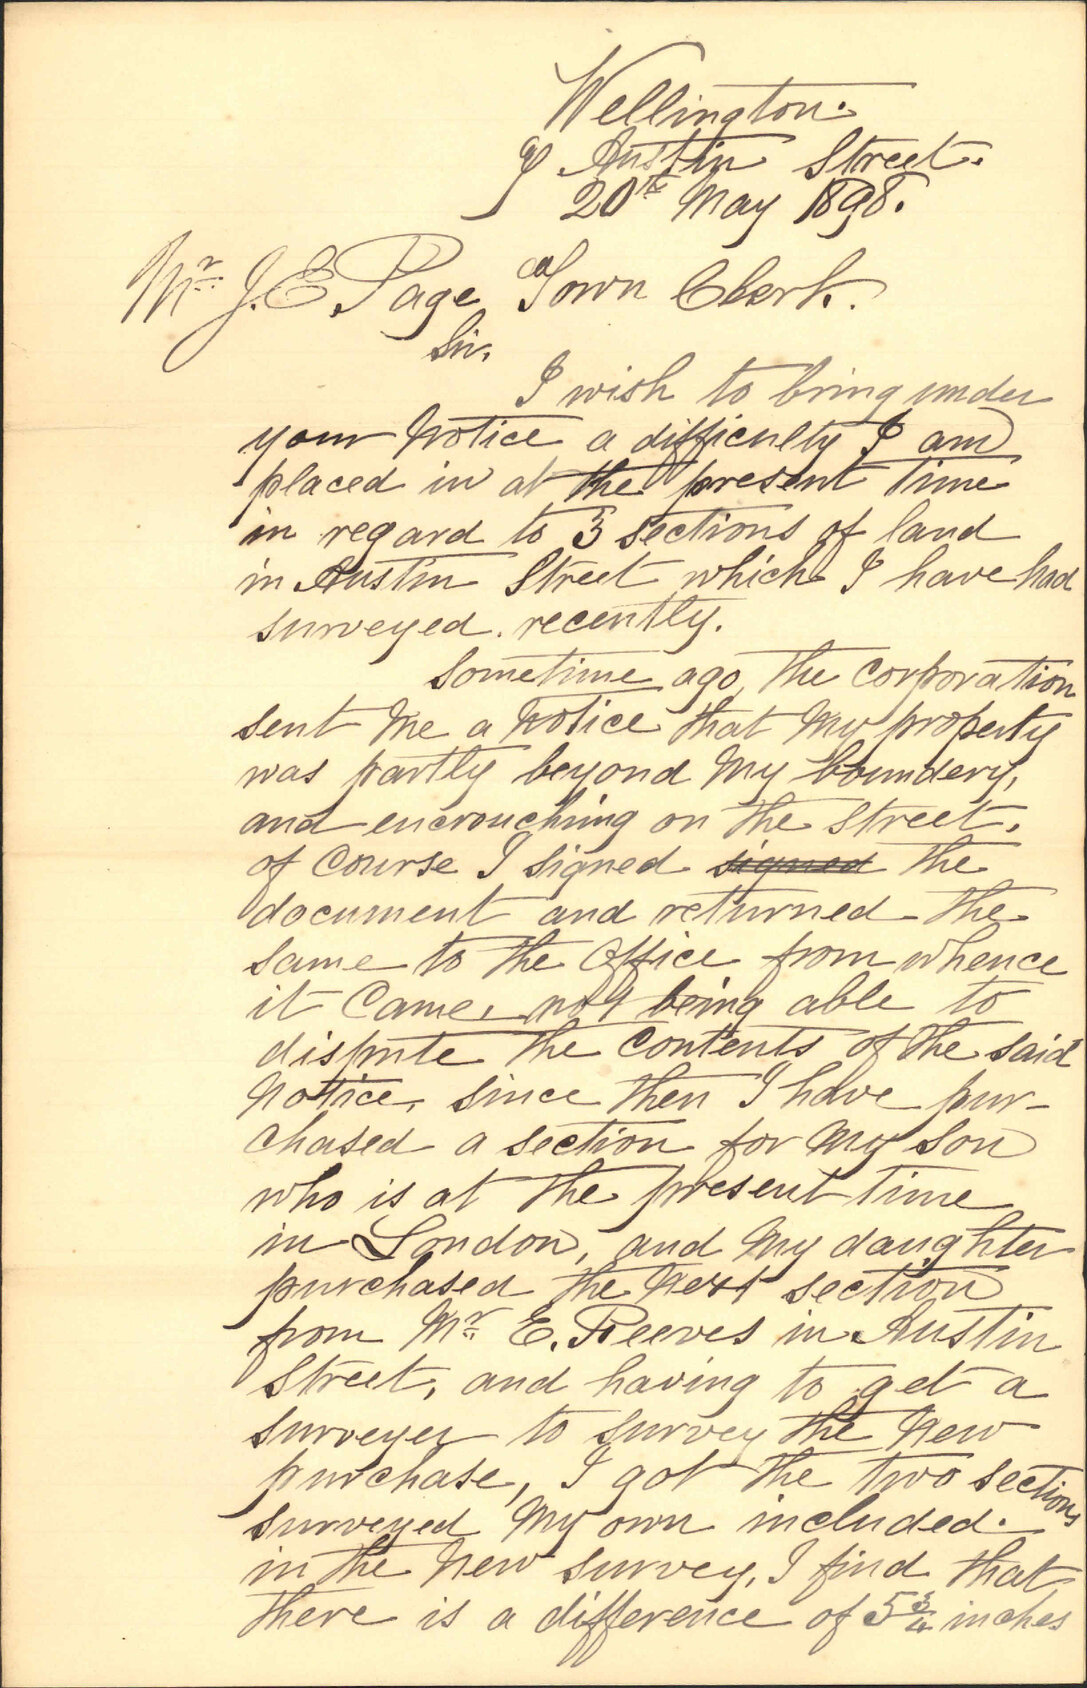 Wellington.
9 Austin Street.
20th May 1898.
Mr. J. E. Page Town Clerk.
Sir,
I wish to bring under
your Notice a difficulty I am
placed in at the present time
in regard to 3 sections of land
in Austin Street which I have had
surveyed. recently.
Sometime ago, the Corporation
sent Me a Notice that My property
was partly beyond My boundery,
and encrouching on the Street.
of Course I signed signed the
document and returned the
same to the Office from whence
it Came, not being able to
dispute the Contents of the said
Notice, since then I have pur-
chased a section for My Son
who is at the present time
in London, and My daughter
purchased the Next section
from Mr. E. Reeves in Austin
Street, and having to get a
surveyer to survey the New
purchase, I got the two sections
surveyed My own included.
in the New survey, I find that
there is a difference of 5 3/4 inches